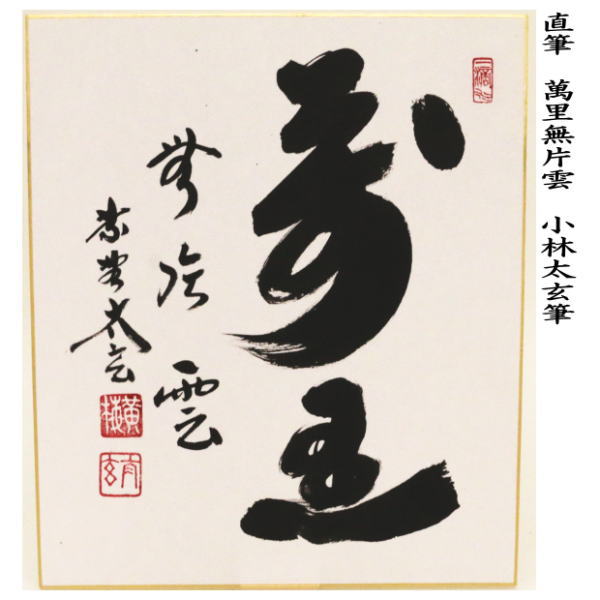 直筆 萬里無片雲 小林太玄筆
萬里
無片雲
紫野太玄
黄梅
太玄